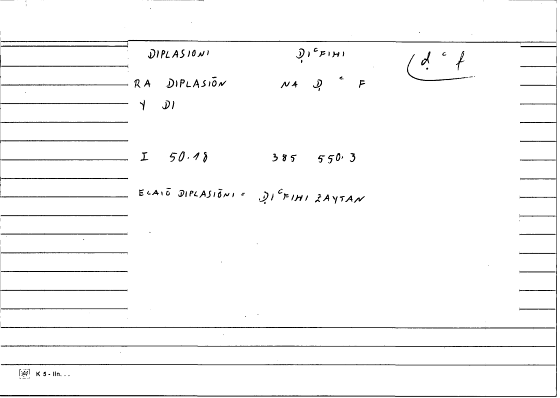 DIPLASIONI ḌIᶜFIHI ḍ ᶜ f
RA DIPLASIŌN NA Ḍ ᶜ F
Y DI
I 50.18 385 550.3
ELAIŌ DIPLASIŌNI = ḌIᶜFIHI ZAYTAN
K 5 - IIn. . .